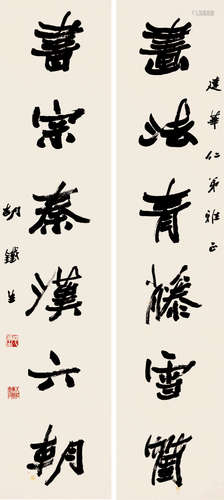 建華仁弟雅正
畫法青藤雪箇
書宗秦漢六朝
胡鐵生